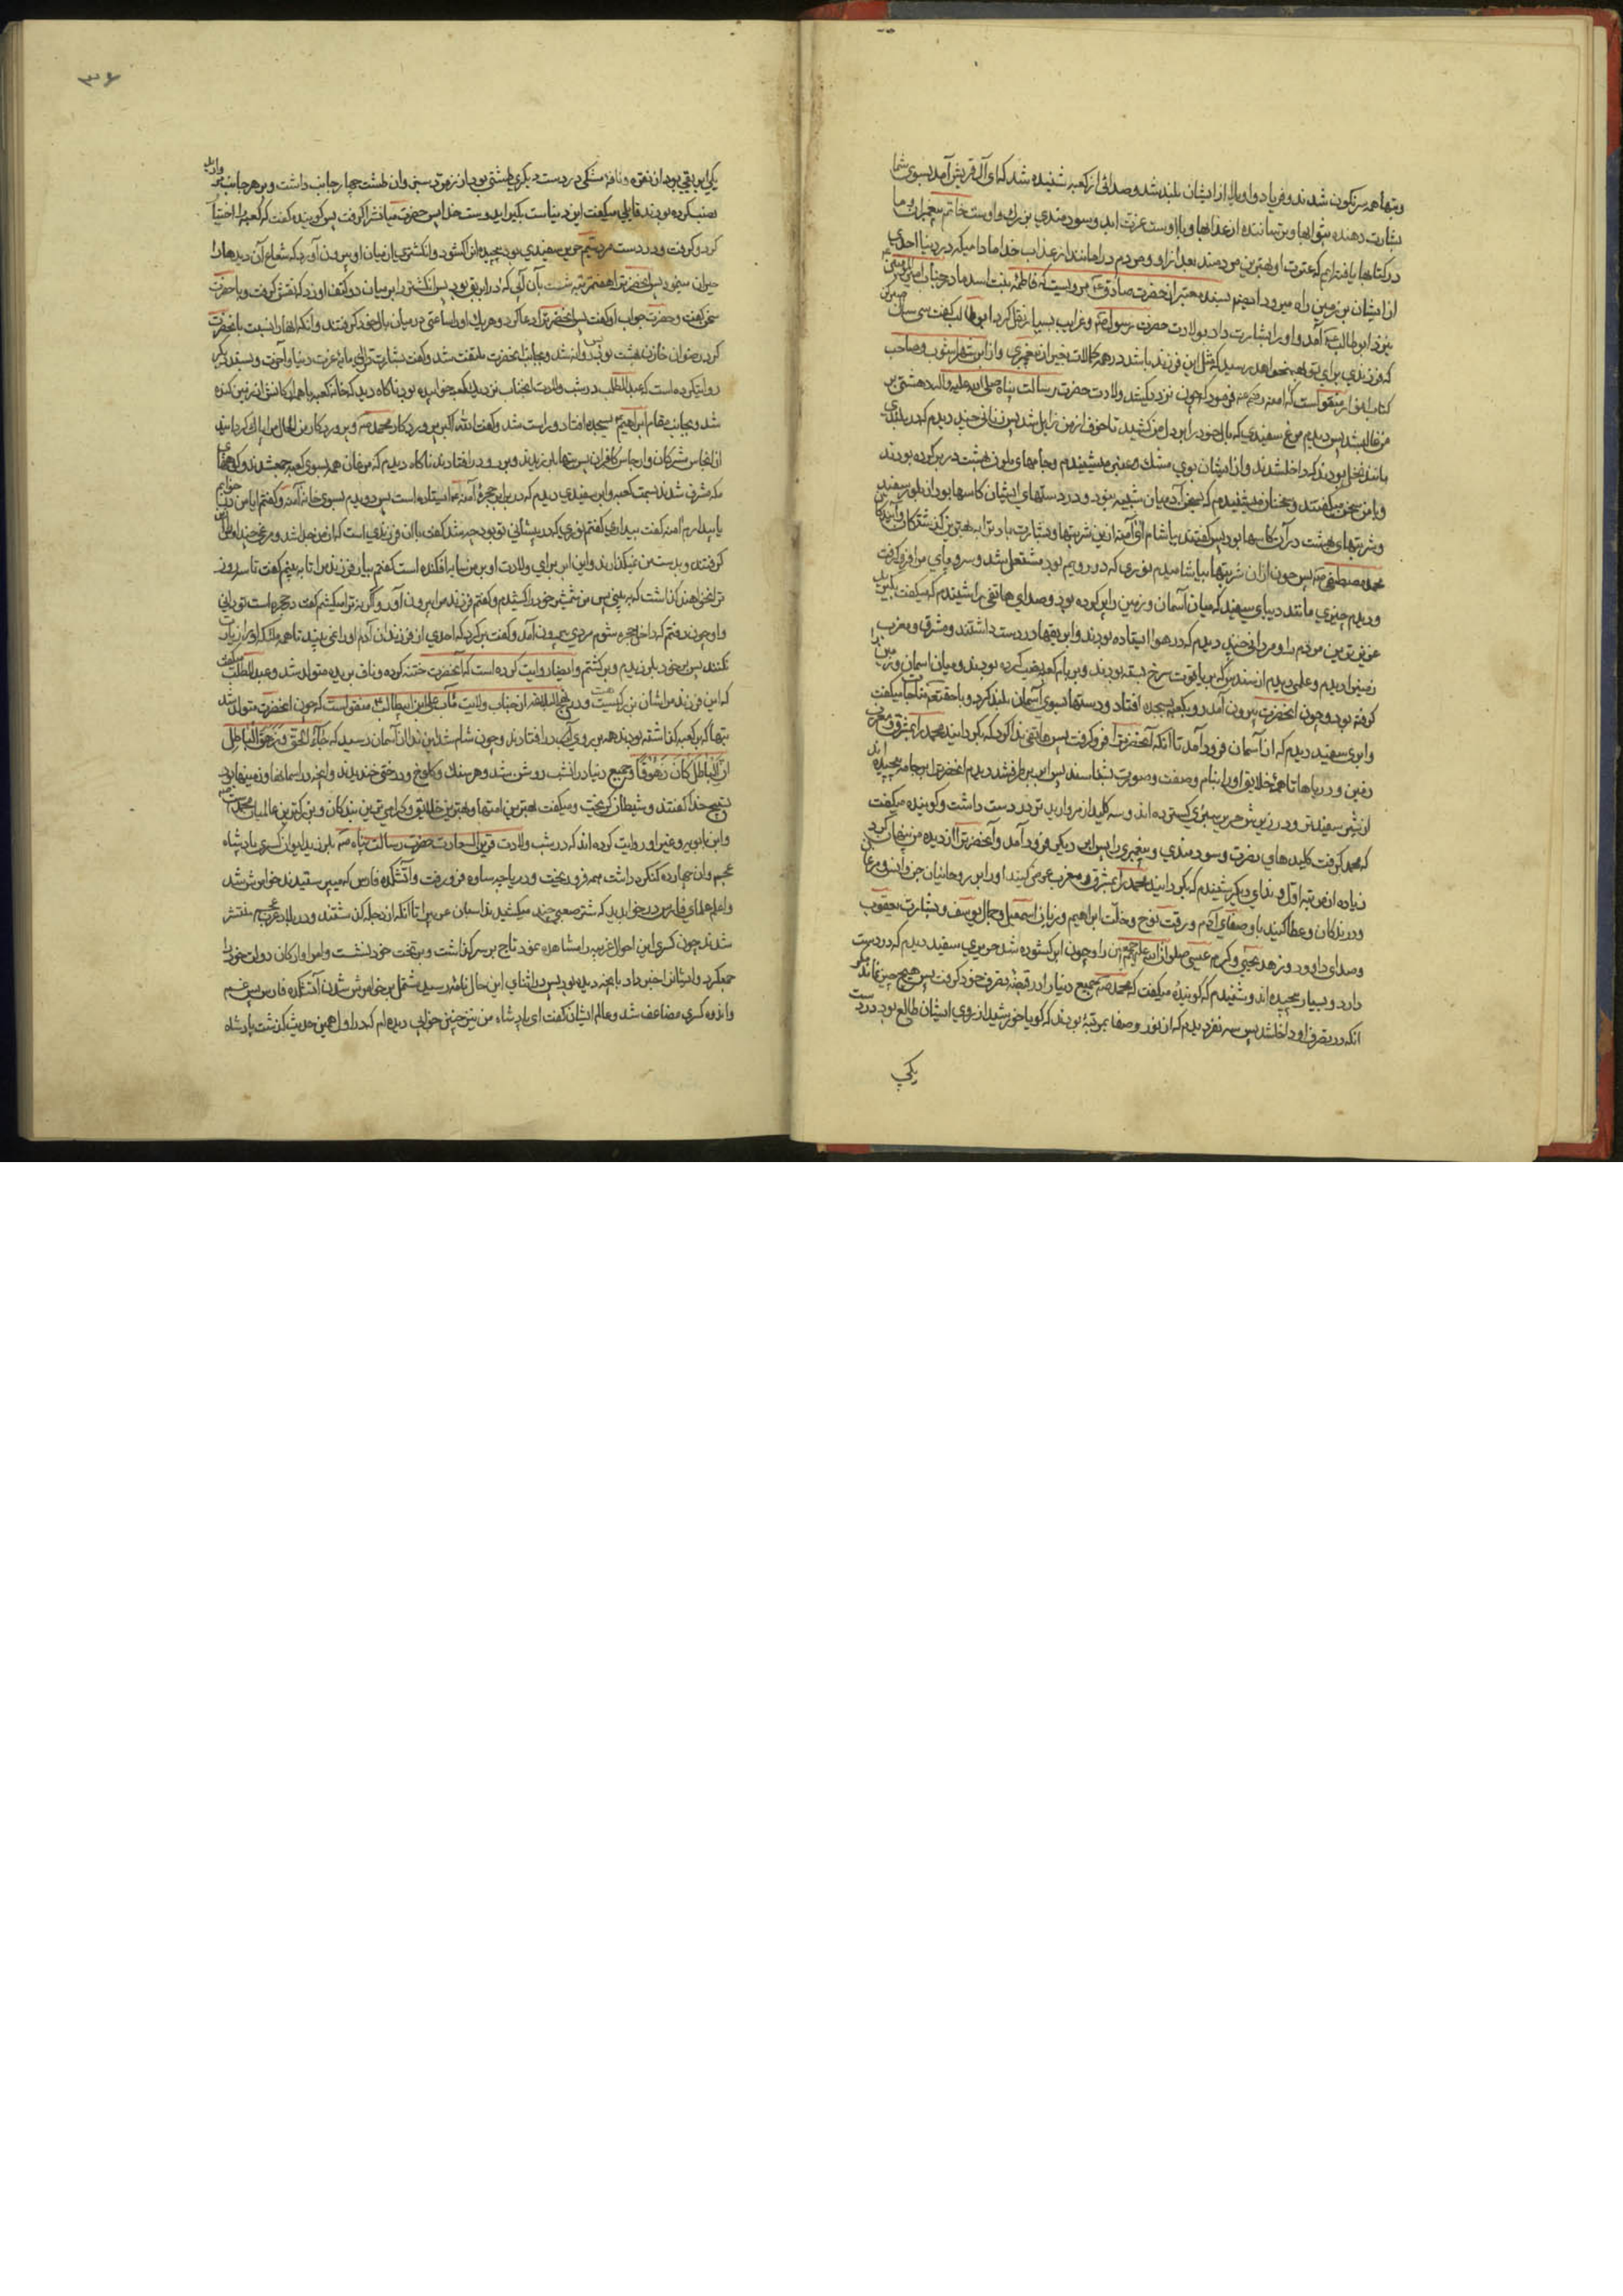 وبتها همه سرنگون شدند و فریاد واویلا از ایشان بلند شد و صدائی از کعبه شنیده شد که ای آل قریش آمد بسوی شما
بشارت دهنده بثوابها و ترساننده از عذابها و با اوست عزت ابد و سودمندی بزرك و اوست خاتم پیغمبران و ما
در کتابها یافته ایم که عترت او بهترین مردمند بعد از او و مردم در امانند از عذاب خدا مادام که در دنیا احدی
از ایشان بر زمین راه میرود ایضا بسند معتبر از حضرت صادق ع مرویست که فاطمه بنت اسد مادر جناب امیر
بنزد ابوطالب آمد و او را بشارت داد بولادت حضرت رسول ص و غرایب بسیار نقل کرد ابوطالب گفت سی سال صبر کن
که فرزندی برای تو بهم خواهد رسید که مثل این فرزند باشد در همه کمالات بغیر از پیغمبری و از ابن شهر اشوب و صاحب
کتاب انوار منقولست که آمنه فرمود که چون نزدیك شد ولادت حضرت رسالت پناه صلی الله علیه واله دهشتی بر
من غالب شد پس دیدم مرغ سفیدی که بال خود را بر دل من کشید تا خوف از من زایل شد پس زنانی چند دیدم که در بلندی
مانند نخل بودند که داخل شدند و از ایشان بوی مشك و عنبر میشنیدم و جامهای ملون بهشت در بر کرده بودند
و با من سخن میگفتند و سخنان میشنیدم که بسخن آدمیان شبیه نبود و در دستهای ایشان کاسها بود از بلور سفید
و شربتهای بهشت در آن کاسها بود پس گفتند بیاشام ای آمنه از این شربتها و بشارت باد ترا به بهترین گذشتگان و آیندگان
محمد مصطفی ص پس چون از ان شربتها بیاشامیدم نوری که در رویم بود مشتعل شد و سراپای مرا فرو گرفت
و دیدم چیزی مانند دیبای سفید که میان آسمان و زمین را پر کرده بود و صدای هاتفی را شنیدم که میگفت بگیرید
عزیزترین مردم را و مردانی چند دیدم که در هوا ایستاده بودند و ابریقها در دست داشتند و مشرق و مغرب
زمین را دیدم و علمی دیدم از سندس که بر یاقوت سرخ بسته بودند و بر بام کعبه نصب کرده بودند و میان اسمان و زمین را
گرفته بود و چون انحضرت بیرون آمد رو بکعبه بسجده افتاد و دستها بسوی آسمان بلند کرد و با حقتعالی مناجات میگفت
و ابری سفید دیدم که از آسمان فرود آمد تا آنکه آنحضرت را فرو گرفت پس هاتفی ندا کرد که بگردانید محمد را بمشرق و مغرب
زمین و دریاها تا همه خلایق او را بنام و صفت و صورت بشناسند پس ابر برطرف شد دیدم انحضرت را بر جامه پیچیده اند
از شیر سفیدتر و در زیرش حریر سبزی گسترده اند و سه کلید از مروارید تر در دست داشت و گوینده میگفت
که محمد گرفت کلیدهای نصرت و سودمندی و پیغمبری را پس ابر دیگر فرود آمد و آنحضرت را از دیده من پنهان کرد
زیاده از مرتبه اول و ندای دیگر شنیدم که بگردانید محمد را بمشرق و مغرب و عرض کنید او را بر روحانیان جن و انس و مرغان
و درندگان و عطا کنید باو صفای آدم و رقت نوح و خلت ابراهیم و زبان اسمعیل و جمال یوسف و بشارت یعقوب
و صدای داود و زهد یحیی و کرم عیسی صلوات الله علیهم اجمعین را و چون ابر گشوده شد حریری سفید دیدم که در دست
دارد و بسیار پیچیده اند و شنیدم که گوینده میگفت که محمد ص جمیع دنیا را در قبضه تصرف خود گرفت پس هیچ چیز نماند مگر
انکه در تصرف او داخل شد پس سه نفر دیدم که از نور و صفا بمرتبه بودند که گویا خورشید از روی ایشان طالع بود در دست
یکی
۳۶
یکی ابریقی بود از نقره و نافه مشکی در دست دیگری طشتی بود از زمرد سبز و ان طشت چهار جانب داشت و بر هر جانب مروارید
نصب کرده بودند قایلی میگفت این دنیاست بگیر ای دوست خدا پس حضرت میانش را گرفت پس گوینده گفت که کعبه را اختیار
کرد و گرفت و در دست مرد سیم حریر سفیدی بود پیچیده انرا گشود و انگشتری از میان او بیرون آورد که شعاع آن دیدها را
حیران مینمود پس انحضرت را هفت مرتبه شست بآن آبی که در ابریق بود پس انگشتر را بر میان دو کتف او زد که نقش گرفت و با حضرت
سخن گفت و حضرت جواب او گفت پس انحضرت را دعا کرد و هر یك او را ساعتی در میان بال خود گرفتند و آنکه انها را نسبت بانحضرت
کرد رضوان خازن بهشت بود پس روانه شد و بجانب انحضرت ملتفت شد و گفت بشارت باد ترا ای مایه عزت دنیا و آخرت و بسند دیگر
روایت کرده است که عبدالمطلب در شب ولادت انجناب نزدیك کعبه خوابیده بود ناگاه دید که خانه کعبه با همه ارکانش از زمین کنده
شد و بجانب مقام ابراهیم ع بسجده افتاد و راست شد و گفت الله اکبر پروردگار محمد ص و پروردگار من الحال مرا پاك گردانید
از انجاس مشرکان و ارجاس کافران پس بتها بلرزیدند و برو در افتادند ناگاه دیدم که مرغان همه بسوی کعبه جمع شدند و کوههای
مکه مشرف شدند بسمت کعبه و ابر سفیدی دیدم که در برابر حجره آمنه ایستاده است پس دویدم بسوی خانه آمنه و گفتم ایا من در خوابم
یا بیدارم آمنه گفت بیداری گفتم نوری که در پیشانی تو بود چه شد گفت با ان فرزندی است که از من جدا شد و مرغی چند او را
گرفتند و بدست من نمیگذارند و این ابر برای ولادت او بر من سایه افکنده است گفتم بیار فرزندم را تا به بینم گفت تا سه روز
ترا نخواهند گذاشت که به بینی پس من شمشیر خود را کشیدم و گفتم فرزند مرا بیرون آور و گرنه ترا میکشم گفت در حجره است تو دانی
و او چون رفتم که داخل حجره شوم مردی بیرون آمد و گفت برگرد که احدی از فرزندان آدم او را نمی بیند تا همه ملائکه او را زیارت
نکنند پس بر خود بلرزیدم و برگشتم و ایضا روایت کرده است که آنحضرت ختنه کرده و ناف بریده متولد شد و عبدالمطلب میگفت
که این فرزند مرا شان بزرگیست و در نهج البلاغه از جناب ولایت مآب علی بن ابیطالب ع منقولست که چون انحضرت متولد شد
بتها که بر کعبه گذاشته بودند همه بر رو در افتادند و چون شام شد این ندا از آسمان رسید که جاء الحق و زهق الباطل
ان الباطل کان زهوقا و جمیع دنیا در انشب روشن شد و هر سنك و کلوخ و درختی خندیدند و انچه در اسمانها و زمینها بود
تسبیح خدا گفتند و شیطان گریخت و میگفت بهترین امتها و بهترین خلایق و گرامی ترین بندگان و بزرگترین عالمیان محمد است ص
و ابن بابویه و غیر او روایت کرده اند که در شب ولادت قرین السعادت حضرت رسالت پناه ص بلرزید ایوان کسری پادشاه
عجم و ان چهارده کنگره داشت همه فرو ریخت و دریاچه ساوه فرو رفت و آتشکده فارس که میپرستیدند خاموش شد
و اعلم علمای فارس در خواب دید که شتر صعبی چند میکشید اسبان عربی را تا آنکه از دجله گذشتند و در بلاد عجم منتشر
شدند چون کسری این احوال غریبه را مشاهده نمود تاج بر سر گذاشت و بر تخت خود نشست و امرا و ارکان دولت خود را
جمع کرد و ایشانرا خبر داد بانچه دیده بود پس در اثنای این حال نامه رسید مشتمل بر خاموش شدن آتشکده فارس پس غم
و اندوه کسری مضاعف شد و عالم ایشان گفت ای پادشاه من نیز چنین خوابی دیده ام که در اول همین حدیث گذشت پادشاه